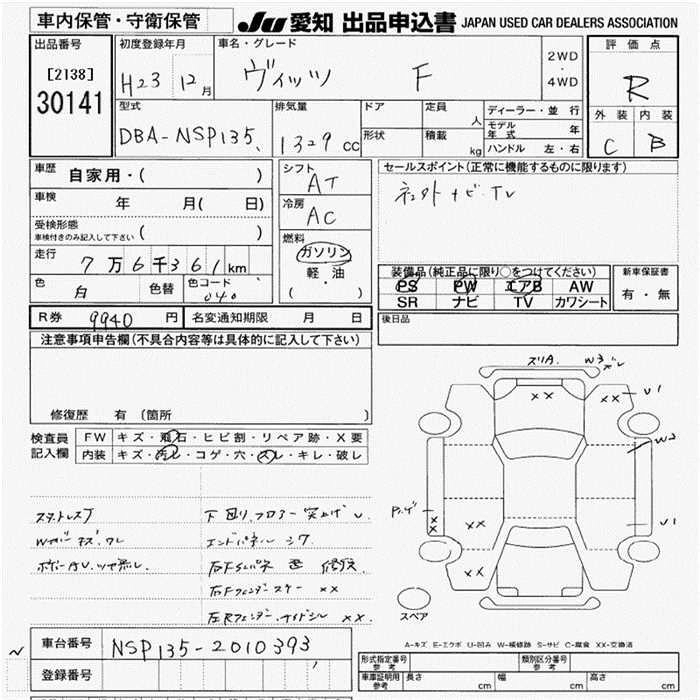 車内保管・守衛保管
JU 愛知 出品申込書 JAPAN USED CAR DEALERS ASSOCIATION
出品番号
[2138]
30141
初度登録年月
H23 12月
車名・グレード
ヴィッツ F
2WD
・
4WD
評価点
R
外装 内装
C B
型式
DBA-NSP135
排気量
1329 cc
ドア
形状
定員 人
積載 kg
ディーラー・並行
モデル年式 年
ハンドル 左・右
車歴 自家用・( )
車検 年 月( 日)
受検形態
車検付きのみ記入して下さい ( )
走行 7万6千361km
色 白 色替 色コード 040
シフト AT
冷房 AC
燃料
ガソリン
軽・油
( ・ )
セールスポイント(正常に機能するものに限ります)
ナビ・TV
装備品(純正品に限り○をつけてください)
PS PW エアB AW
SR ナビ TV カワシート
新車保証書
有・無
R券 9940 円
名変通知期限 月 日
後日品
注意事項申告欄(不具合内容等は具体的に記入して下さい)
修復歴 有(箇所 )
検査員記入欄
FW キズ・飛石・ヒビ割・リペア跡・X要
内装 キズ・汚レ・コゲ・穴・スレ・キレ・破レ
スタットレスブ
下回り、フロアー突上げ U.
エンドパネル シワ
右Fフェンダー XX
左Rフェンダー XX.
ズリA. W3
XX
U1
W2
U1
XX
XX
XX
XX
スペア
A-キズ E-エクボ U-凹み W-補修跡 S-サビ C-腐食 XX-交換済
車台番号 NSP135-2010393
登録番号
形式指定番号 参考
類別区分番号 参考
車庫証明用 参考 長さ cm 幅 cm 高さ cm